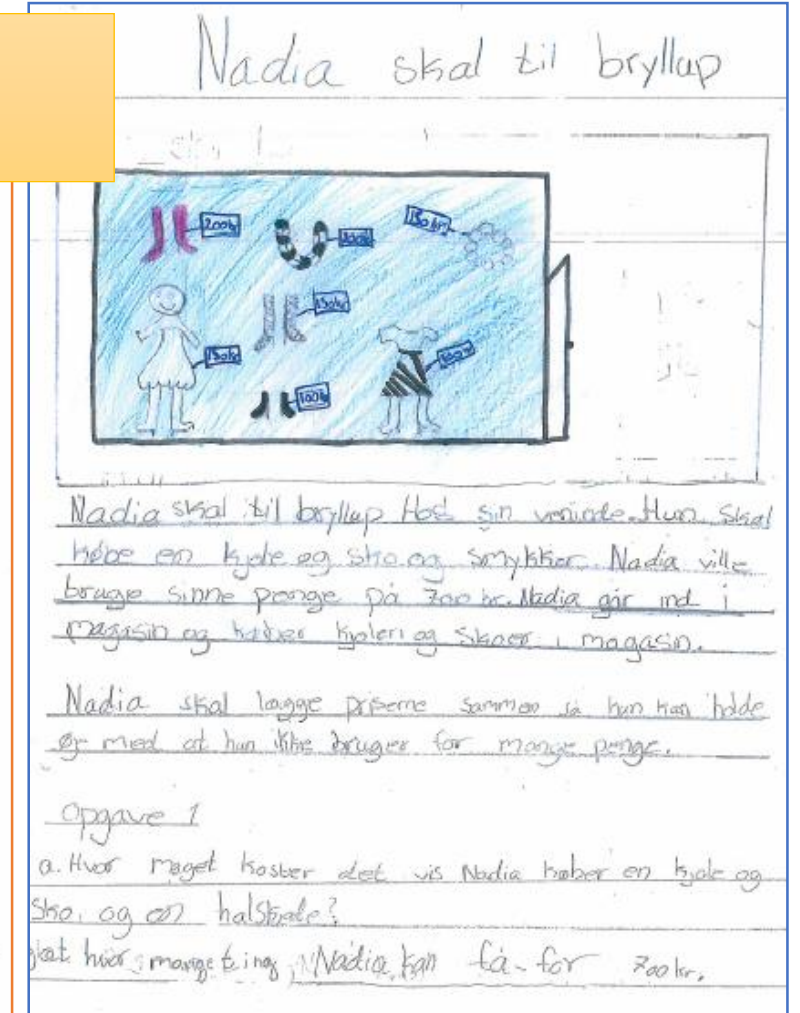 Nadia skal til bryllup
200kr
130kr
130kr
150kr
100kr
Nadia skal til bryllup Hos sin veninde. Hun skal
købe en kjole og sko og smykker. Nadia ville
bruge sinne penge på 700 kr. Nadia går ind i
magasin og køber kjolen og skoer i magasin.
Nadia skal lægge priserne sammen så hun kan holde
øje med at hun ikke bruger for mange penge.
Opgave 1
a. Hvor maget koster det vis Nadia køber en kjole og
sko, og en halskæde?
hvor mange ting Nadia kan få for 700 kr.